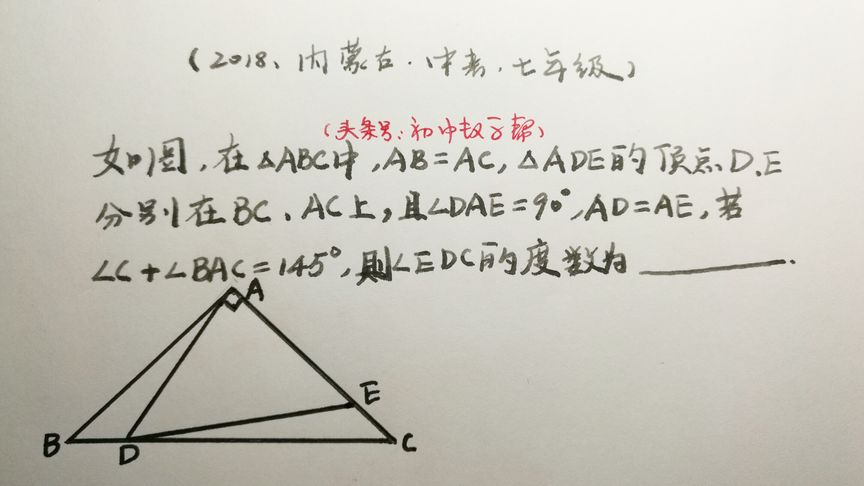 (2018、内蒙古·中考·七年级)
(头条号:初中数子帮)
如图,在△ABC中,AB=AC,△ADE的顶点D、E
分别在BC、AC上,且∠DAE=90°,AD=AE,若
∠C+∠BAC=145°,则∠EDC的度数为______.
A
E
B
D
C